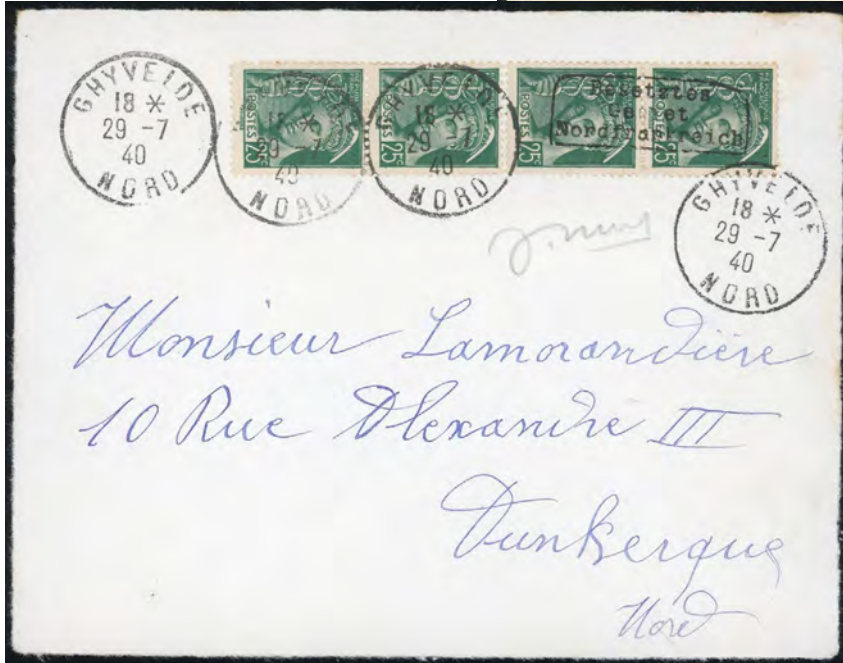 GHYVELDE
18 *
29 -7
40
NORD
18 *
29 -7
40
NORD
GHYVELDE
18 *
29 -7
40
NORD
POSTES 25
POSTES 25
POSTES 25
POSTES 25
Besetztes
Gebiet
Nordfrankreich
GHYVELDE
18 *
29 -7
40
NORD
Monsieur Lamorandière
10 Rue Alexandre III
Dunkerque
Nord